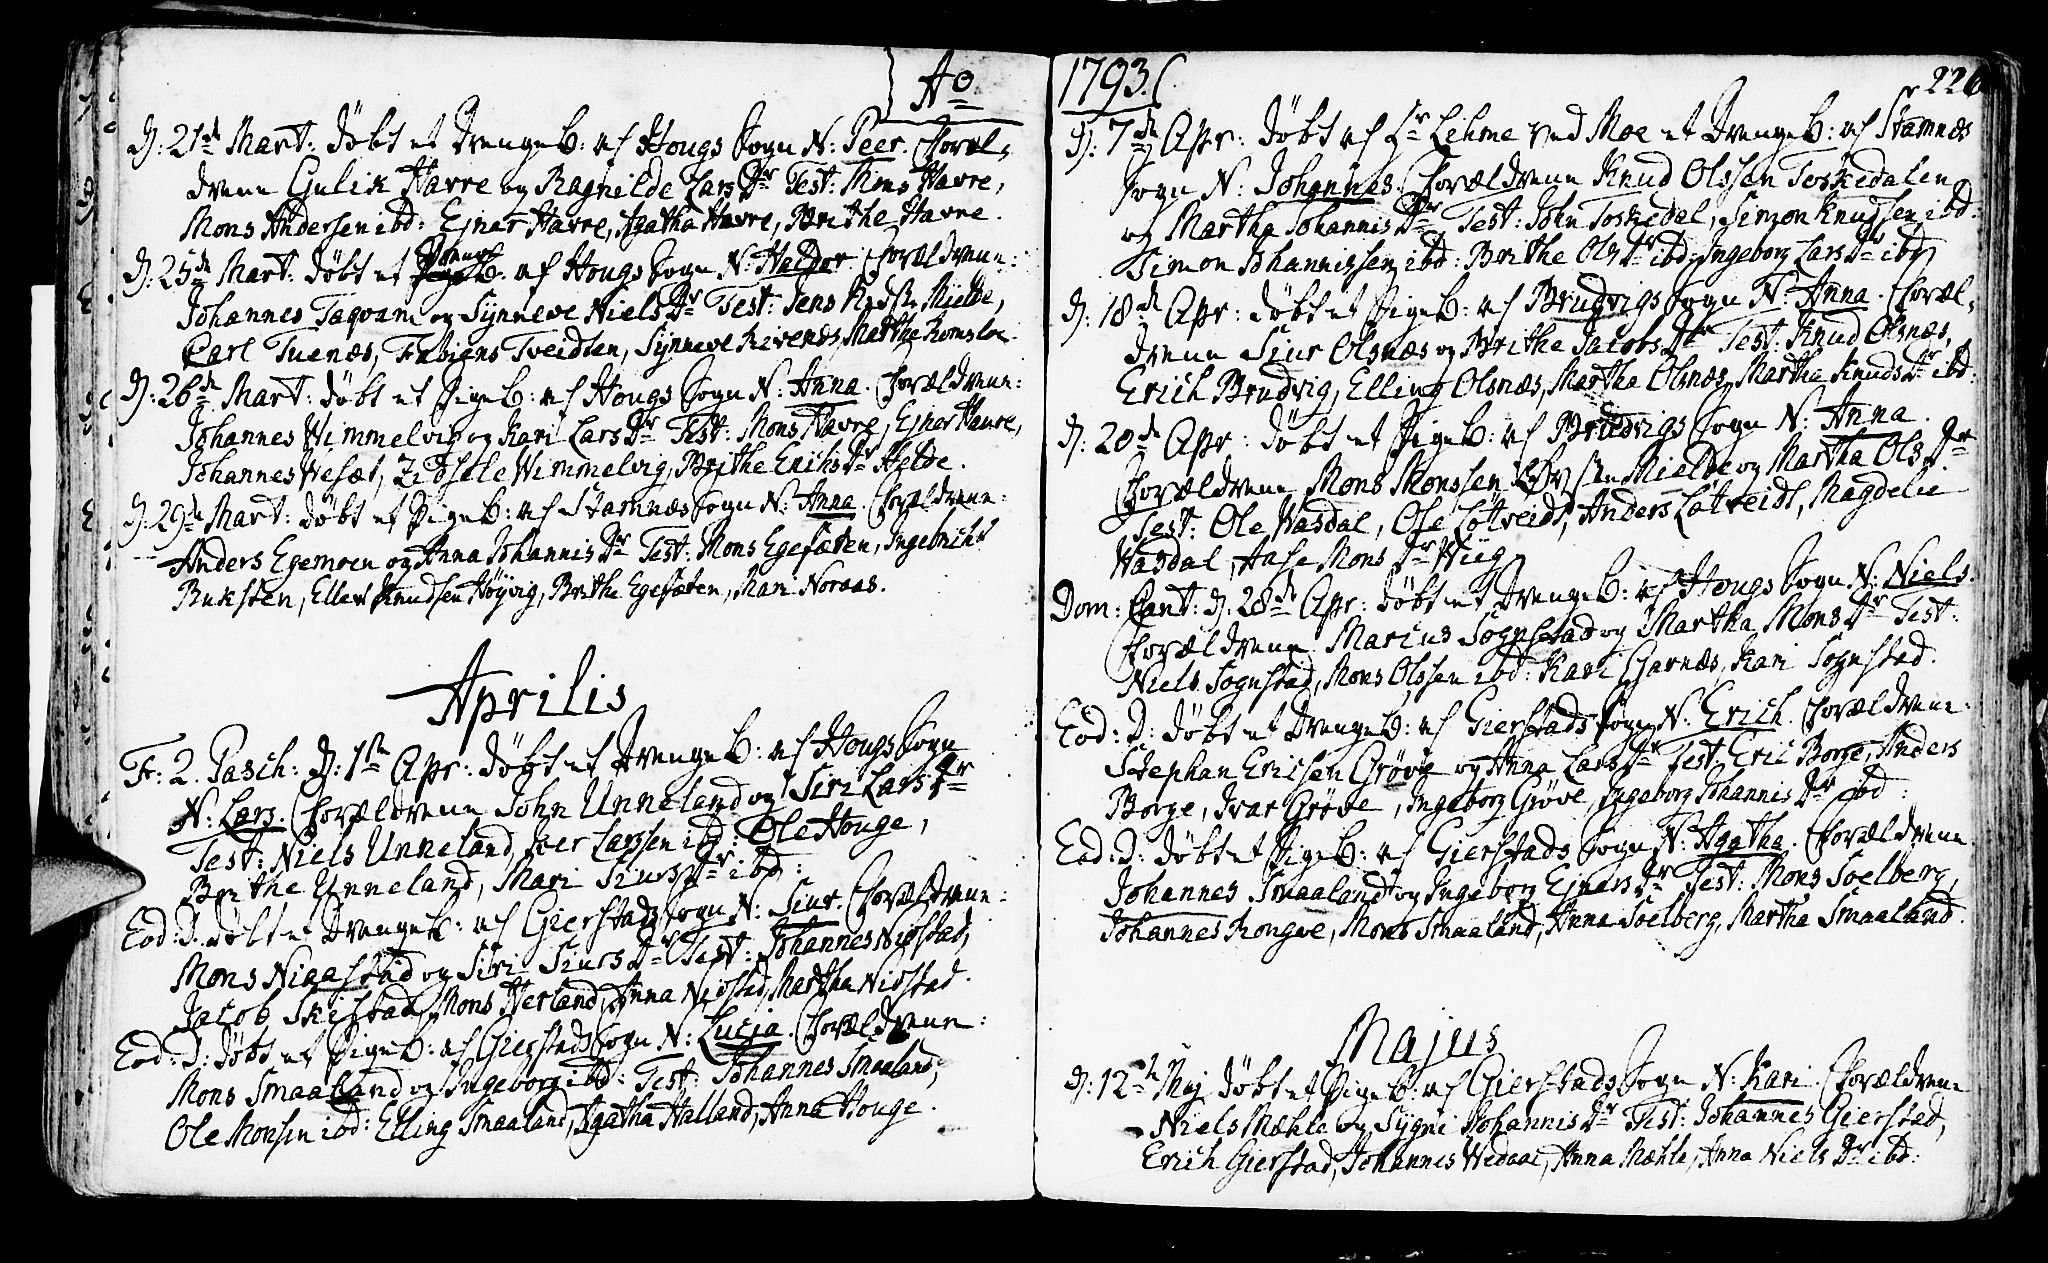 Ao
D: 21de Mart: døbt et DrengeB: af Hougs Sogn N: Peer. Foræl-
drene Gulik Havre og Ragnilde Lars Dr Test: Mons Havre,
Mons Andersen ibd: Ejnar Havre, Agatha Havre, Brithe Havre.
D: 25de Mart: døbt et DrengeB: af Hougs Sogn N: Haldor. Forældrene:
Johannes Taqvam og Synneve Niels Dr Test: Jens Mielde,
Carl Tuenæs, Fabiens Tveidten, Synneve Rivenes, Marthe Romsloe
D: 26de Mart: døbt et PigeB: af Hougs Sogn N: Anna. Forældrene:
Johannes Wimmelvig og Kari Lars Dr Test: Mons Havre, Ejnor Havre,
Johannes Wesæt, Zidsele Wimmelvig, Brithe Erichs Dr Helde.
D: 29de Mart: døbt et PigeB: af Stamnæs Sogn N: Anna. Forældrene:
Anders Egemoen og Anna Johannis Dr Test: Mons Egesæten, Ingebricht
Buksten, Ellert Knudsen Høyvig, Brithe Egesæten, Mari Noraas.
Aprilis
F: 2. Pasch: D: 1ste Apr: døbt et DrengeB: af Hougs Sogn
N: Lars. Forældrene John Unneland og Siri Lars Dr
Test: Niels Unneland, Iver Larssen ibd: Ole Houge,
Brithe Unneland, Mari Siurs Dr ibd:
Eod: D: døbt et DrengeB: af Gierstads Sogn N: Siur. Forældrene:
Mons Nigastad og Siri Siurs Dr Test: Johannes Nidstad,
Jacob Skistad, Mons Herland, Anna Nidstad, Martha Nidstad.
Eod: D: døbt et PigeB: af Gierstads Sogn N: Lucia. Forældrene:
Mons Smaaland og Ingeborg ibd: Test: Johannes Smaaland,
Ole Monsen ibd: Elling Smaaland, Agatha Halland, Anna Houge.
1793.
226
D: 7de Apr: døbt af Hr Lehme ved Moe et DrengeB: af Stamnæs
Sogn N: Johannes. Forældrene Knud Olssen Toskedalen
og Martha Johannis Dr Test: John Toskedal, Simon Knudsen ibd:
Simon Johannissen ibd: Brithe Ols Dr ibd: Ingeborg Lars Dr ibd
D: 18de Apr: døbt et PigeB: af Brudvigs Sogn N: Anna. Foræl-
drene Siur Olsnæs og Brithe Jacobs Dr Test: Knud Olsnæs,
Erich Brudvig, Elling Olsnæs, Martha Olsnæs, Martha Knuds Dr ibd:
D: 20de Apr: døbt et PigeB: af Brudvigs Sogn N: Anna.
Forældrene Mons Monssen Mielde og Martha Ols Dr
Test: Ole Wasdal, Ole Løtveidt, Anders Løtveidt, Magdelie
Wasdal, Aase Mons Dr Wiig
Dom: Cant: D: 28de Apr: døbt et DrengeB: af Hougs Sogn N: Niels.
Forældrene Marius Sognstad og Martha Mons Dr Test:
Niels Sognstad, Mons Olssen ibd: Kari Garnæs, Kari Sognstad.
Eod: D: døbt et DrengeB: af Gierstads Sogn N: Erich. Forældrene:
Stephan Ericsen Grøve og Anna Lars Dr Test: Eric Borge, Anders
Borge, Ivar Grøve, Ingeborg Grøve, Ingeborg Johannis Dr ibd:
Eod: D: døbt et PigeB: af Gierstads Sogn N: Agatha. Forældrene
Johannes Smaaland og Ingeborg Ejnars Dr Test: Mons Soelberg,
Johannes Rongve, Mons Smaaland, Anna Soelberg, Martha Smaaland.
Majus
D: 12te Maj døbt et PigeB: af Gierstads Sogn N: Kari. Forældrene
Niels Mæhle og Sygni Johannis Dr Test: Johannes Gierstad,
Erich Gierstad, Johannes Wedaae, Anna Mæhle, Anna Niels Dr ibd: